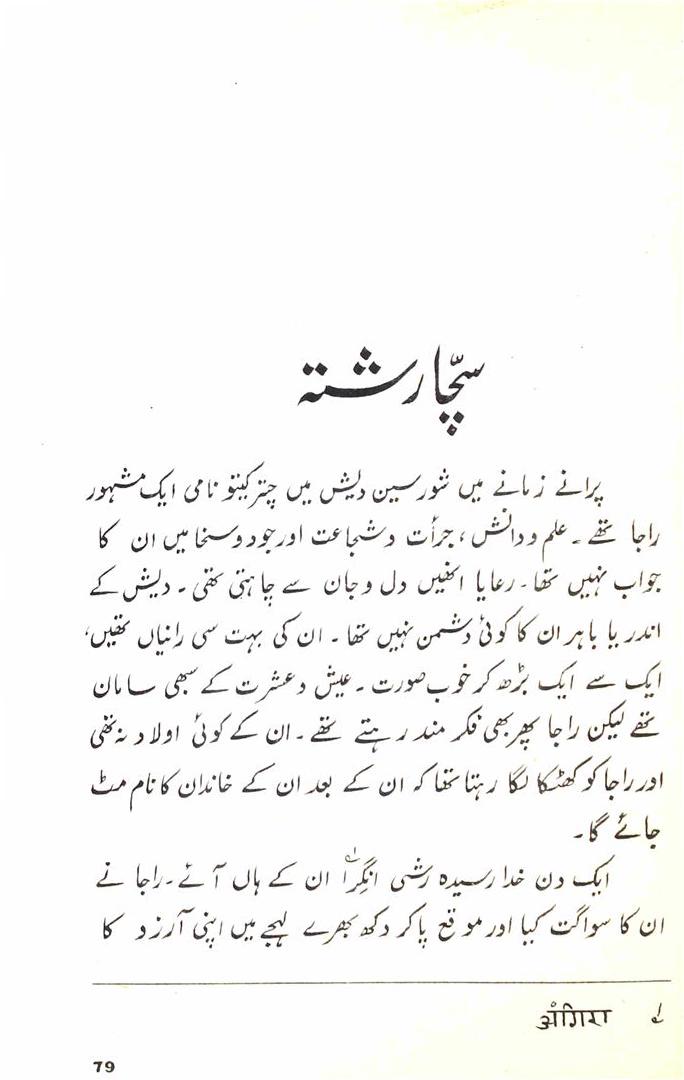 سچّا رشتہ
پرانے زمانے میں شورسین دیش میں چترکیتو نامی ایک مشہور
راجا تھے۔ علم و دانش، جرأت و شجاعت اور جود و سخا میں ان کا
جواب نہیں تھا۔ رعایا انھیں دل و جان سے چاہتی تھی۔ دیش کے
اندر یا باہر ان کا کوئی دشمن نہیں تھا۔ ان کی بہت سی رانیاں تھیں،
ایک سے ایک بڑھ کر خوب صورت۔ عیش و عشرت کے سبھی سامان
تھے لیکن راجا پھر بھی فکر مند رہتے تھے۔ ان کے کوئی اولاد نہ تھی
اور راجا کو کھٹکا لگا رہتا تھا کہ ان کے بعد ان کے خاندان کا نام مٹ
جائے گا۔
ایک دن خدا رسیدہ رشی انگِرا ۱ ان کے ہاں آئے۔ راجا نے
ان کا سواگت کیا اور موقع پاکر دکھ بھرے لہجے میں اپنی آرزو کا
۱ अंगिरा
79